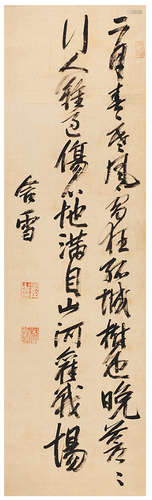 二月春寒風尚狂孤城樹色晚蒼〻
行人難過傷心地滿目山河舊戰場
含雪